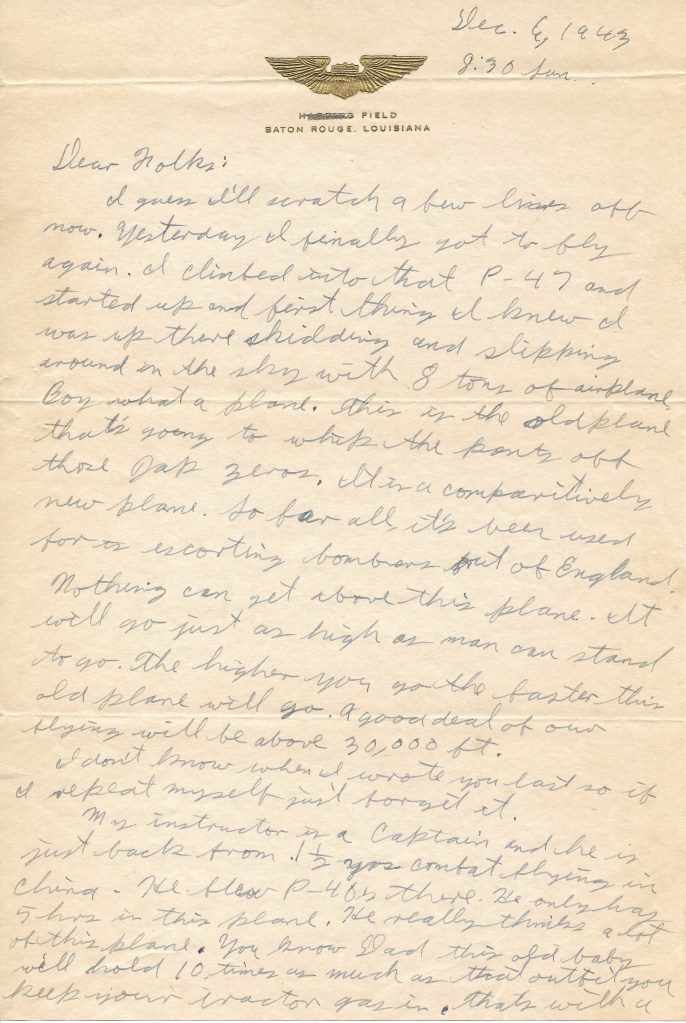 Dec. 6, 1943
8:30 Sun.
HARDING FIELD
BATON ROUGE, LOUISIANA
Dear Folks:
I guess I'll scratch a few lines off
now. Yesterday I finally got to fly
again. I climbed into that P-47 and
started up and first thing I knew I
was up there skidding and slipping
around in the sky with 8 tons of airplane.
Boy what a plane. This is the old plane
that's going to whip the pants off
those Jap zeros. It is a comparitively
new plane. So far all it's been used
for is escorting bombers out of England.
Nothing can get above this plane. It
will go just as high as man can stand
to go. The higher you go the faster this
old plane will go. A good deal of our
flying will be above 30,000 ft.
I don't know when I wrote you last so if
I repeat myself just forget it.
My instructor is a Captain and he is
just back from 1½ yrs combat flying in
China - He flew P-40's there. He only has
5 hrs in this plane. He really thinks a lot
of this plane. You know Dad this old baby
will hold 10 times as much as that outfit you
keep your tractor gas in. thats with a